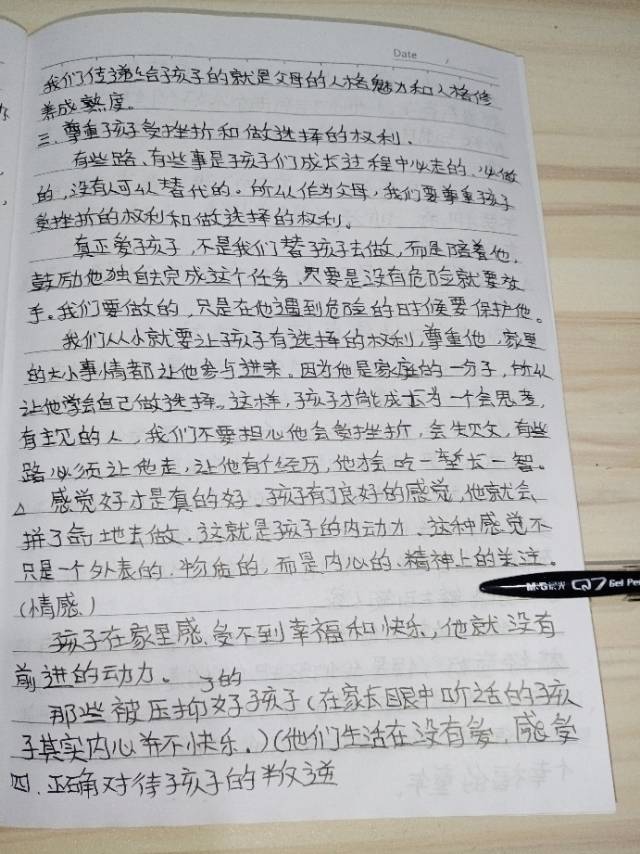 Date
我们传递给孩子的就是父母的人格魅力和人格修
养成熟度。
三、尊重孩子受挫折和做选择的权利、
有些路、有些事是孩子们成长过程中必走的、必做
的,没有人可以替代的。所以作为父母,我们要尊重孩子
受挫折的权利和做选择的权利。
真正爱孩子,不是我们替孩子去做,而是陪着他,
鼓励他独自去完成这个任务,只要是没有危险就要放
手。我们要做的,只是在他遇到危险的时候要保护他。
我们从小就要让孩子有选择的权利,尊重他,家里
的大小事情都让他参与进来。因为他是家庭的一分子,所以
让他学会自己做选择。这样,孩子才能成长为一个会思考,
有主见的人,我们不要担心他会受挫折,会失败,有些
路必须让他走,让他有个经历,他才会吃一堑长一智。
△ 感觉好才是真的好、孩子有了良好的感觉,他就会
拼了命地去做、这就是孩子的内动力、这种感觉不
只是一个外表的、物质的,而是内心的、精神上的关注。
(情感)
孩子在家里感受不到幸福和快乐,他就没有
前进的动力。
那些被压抑了的好孩子(在家长眼中听话的孩
子其实内心并不快乐。)(他们生活在没有爱,感受
四、正确对待孩子的叛逆
M&G晨光 Q7 Gel Pen